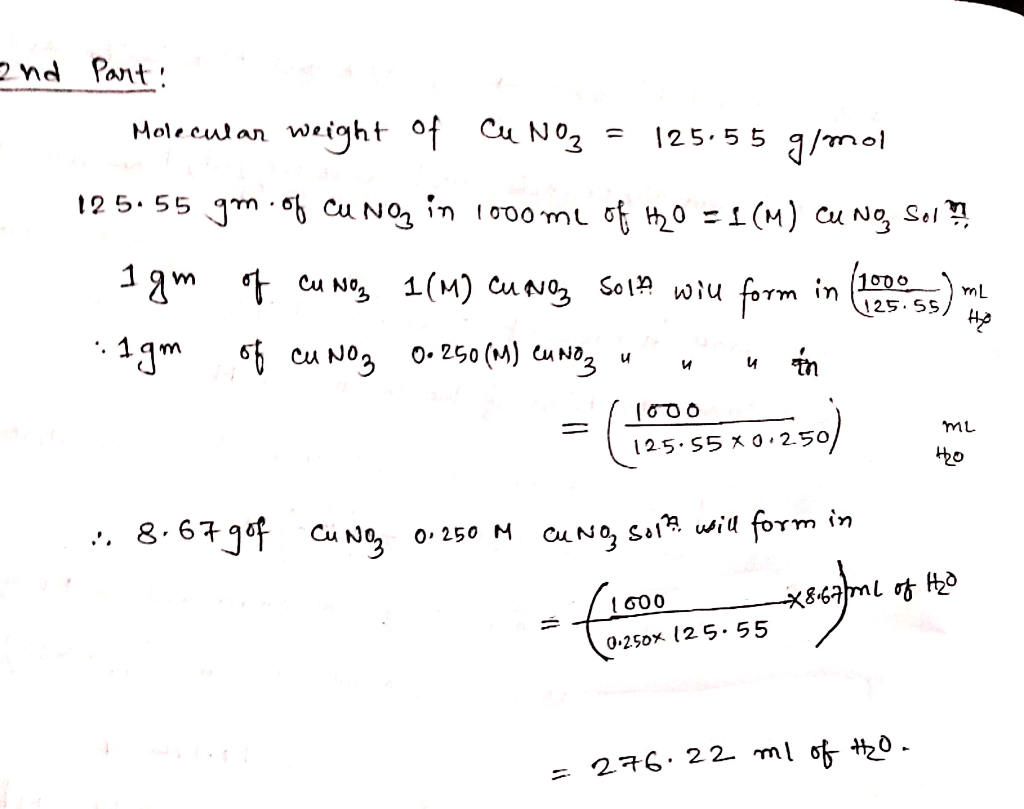 2nd Part:
Molecular weight of CuNO₃ = 125.55 g/mol
125.55 gm. of CuNO₃ in 1000 mL of H₂O = 1(M) CuNO₃ Solⁿ.
1 gm of CuNO₃ 1(M) CuNO₃ Solⁿ will form in (1000/125.55) mL H₂O
∴ 1 gm of CuNO₃ 0.250(M) CuNO₃ " " " in
= (1000/125.55 × 0.250) mL H₂O
∴ 8.67 g of CuNO₃ 0.250 M CuNO₃ Solⁿ. will form in
= (1000/0.250 × 125.55 × 8.67) mL of H₂O
= 276.22 ml of H₂O.